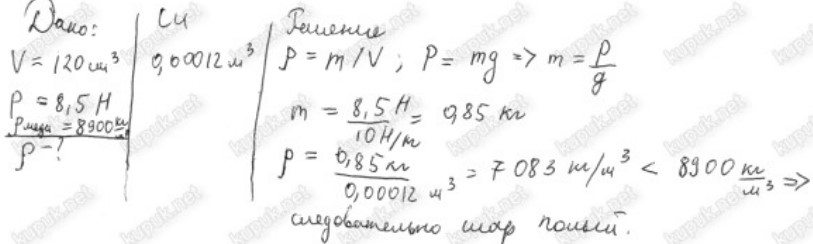 Дано:
V = 120 см³
P = 8,5 Н
ρмеди = 8900 кг/м
ρ - ?
СИ
0,00012 м³
Решение
ρ = m/V ; P = mg => m = P/g
m = 8,5 Н / 10 Н/кг = 0,85 кг
ρ = 0,85 кг / 0,00012 м³ = 7083 кг/м³ < 8900 кг/м³ =>
следовательно шар полый.